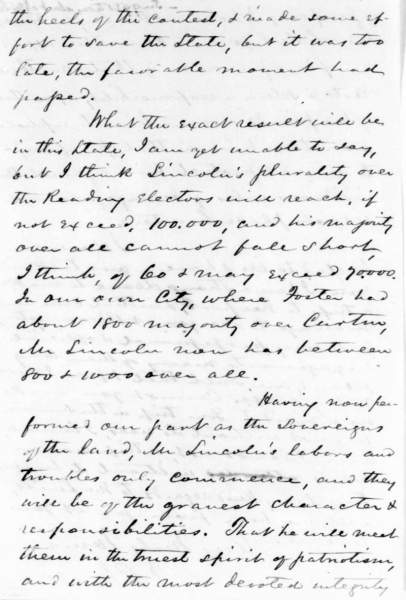 the heels of the contest, & made some ef-
fort to save the State, but it was too
late, the favorable moment had
passed.
What the exact result will be
in this State, I am yet unable to say,
but I think Lincoln's plurality over
the Reading Electors will reach, if
not exceed, 100.000, and his majority
over all cannot fall short,
I think, of 60 & may exceed 70.000.
In our own City, where Foster had
about 1800 majority over Curtin,
Mr Lincoln now has between
800 & 1000 over all.
Having now per-
formed our part as the Sovereigns
of the land, Mr Lincoln's labors and
troubles only commence, and they
will be of the gravest character &
responsibilities. That he will meet
them in the truest spirit of patriotism,
and with the most devoted integrity